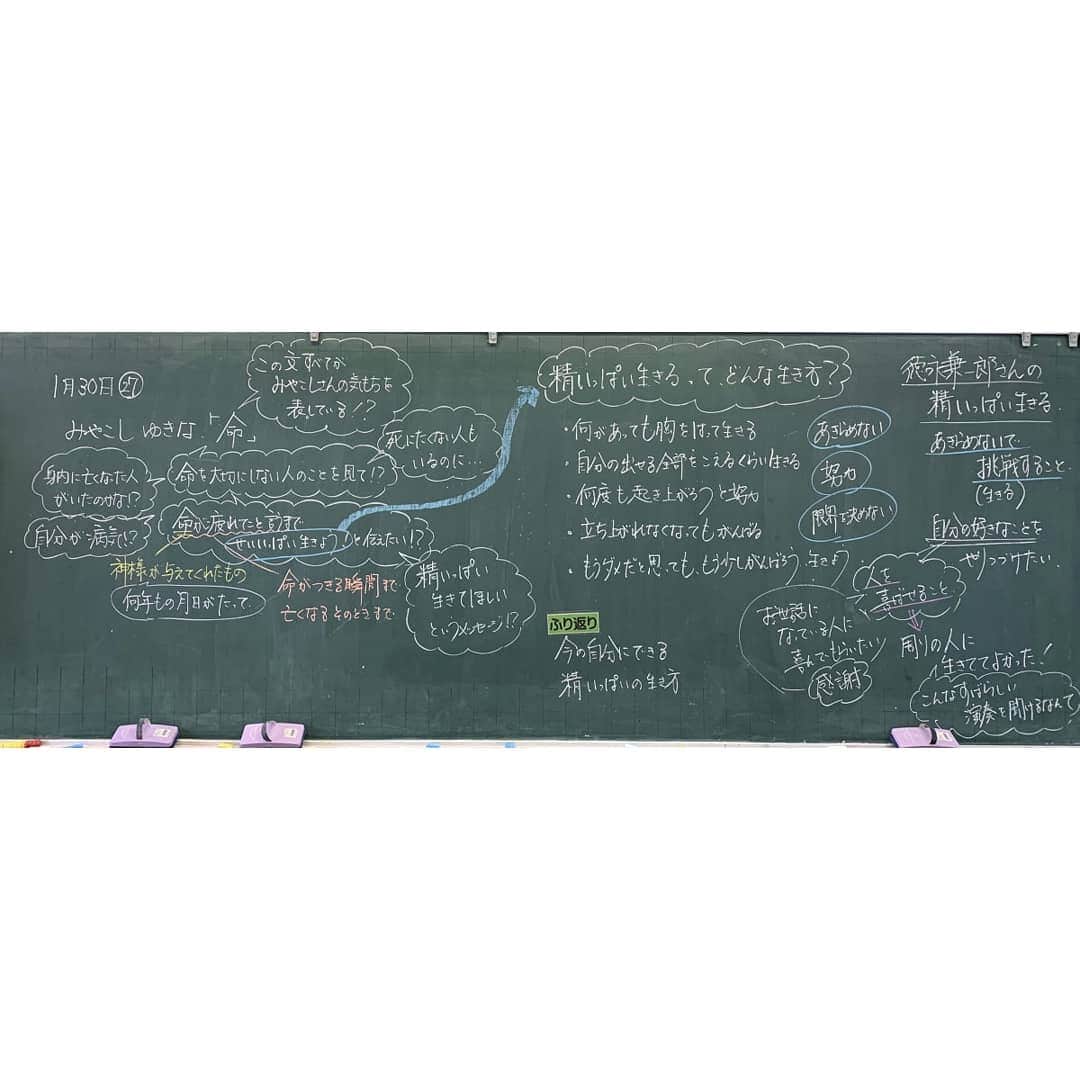 1月30日 ㉗
みやこし ゆきな「命」
この文すべてが
みやこしさんの気もちを
表している!?
死にたくない人も
いるのに…
命を大切にしない人のことを見て!?
身内に亡くなた人
がいたのかな!?
自分が病気!?
命が疲れたと言うまで
せいいっぱい生きよう と伝えたい!?
神様が与えてくれたもの
何年もの月日がたって
命がつきる瞬間まで
亡くなるそのときまで
精いっぱい
生きてほしい
というメッセージ!?
精いっぱい生きるって、どんな生き方?
・何があっても胸をはって生きる
・自分の出せる全部をこえるくらい生きる
・何度も起き上がろうと努力
・立ち上がれなくなってもがんばる
・もうダメだと思っても、もう少しがんばろう、生きよう
あきらめない
努力
限界を決めない
ふり返り
今の自分にできる
精いっぱいの生き方
一郎さんの
精いっぱい生きる
あきらめないで
挑戦すること
(生きる)
自分の好きなことを
やりつづけたい
人を
喜ばせること
お世話に
なっている人に
喜んでもらいたい
感謝
周りの人に
生きててよかった!
こんなすばらしい
演奏を聞けるなんて